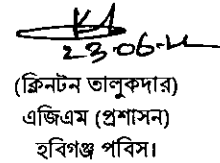 23-06-
(ক্লিনটন তালুকদার)
এজিএম (প্রশাসন)
হবিগঞ্জ পবিস।